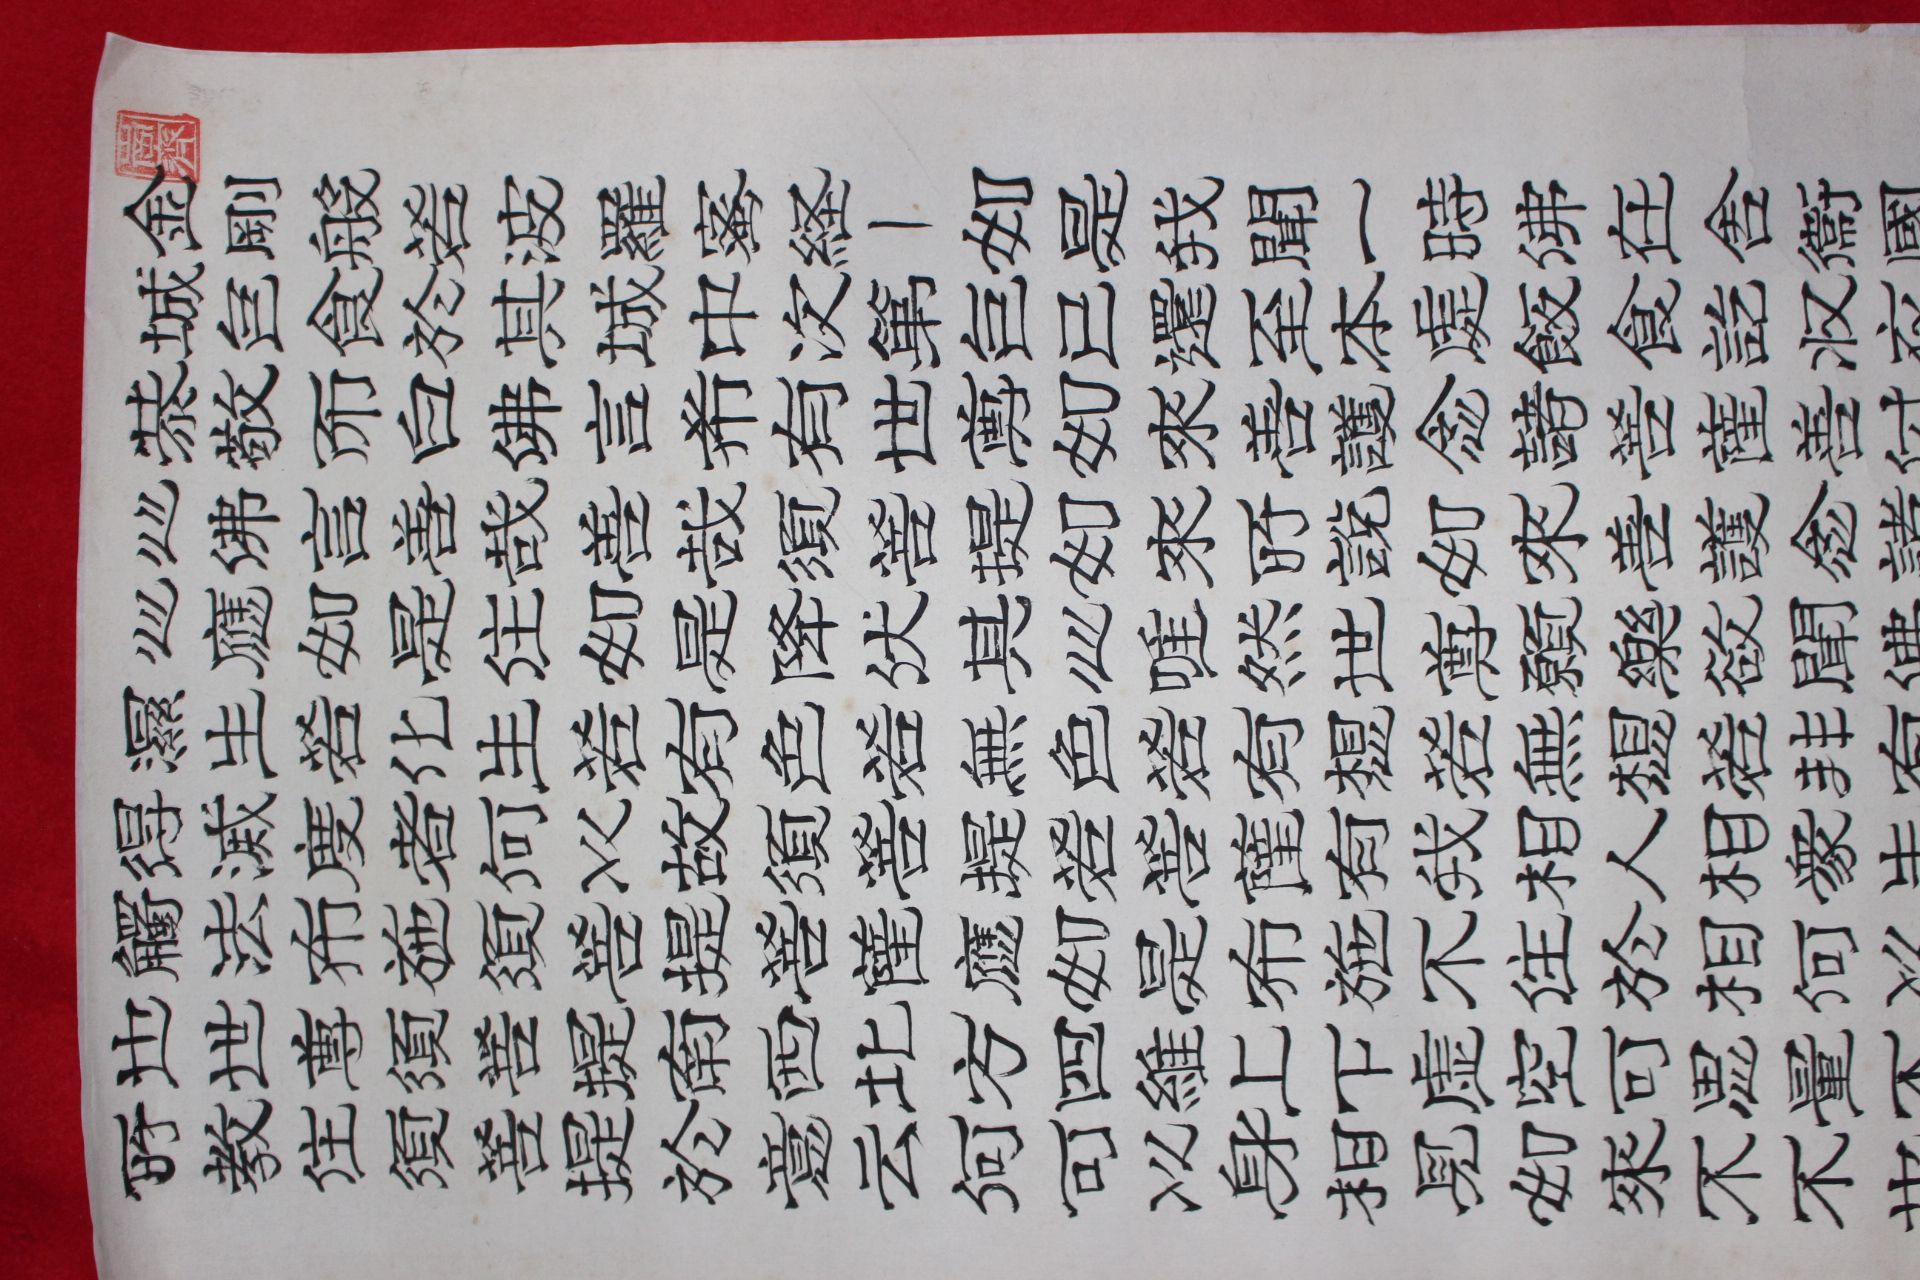 金剛般若波羅蜜経一如是我聞一時佛在舍衞國
城乞食於其城中次第乞已還至本處飯食訖收衣
恭敬而白佛言希有世尊如來善護念諸菩薩善付
心佛言善哉善哉須菩提如來所說如來善護念諸
心應如是住如是降伏其心唯然世尊願樂欲聞佛
濕生若化生若有色若無色若有想若無想若非有
得滅度者何以故須菩提若菩薩有我相人相衆生
觸法布施須菩提菩薩應如是布施不住於相何以
也世尊須菩提南西北方四維上下虛空可思量不
所教住須菩提於意云何可以身相見如來不不也